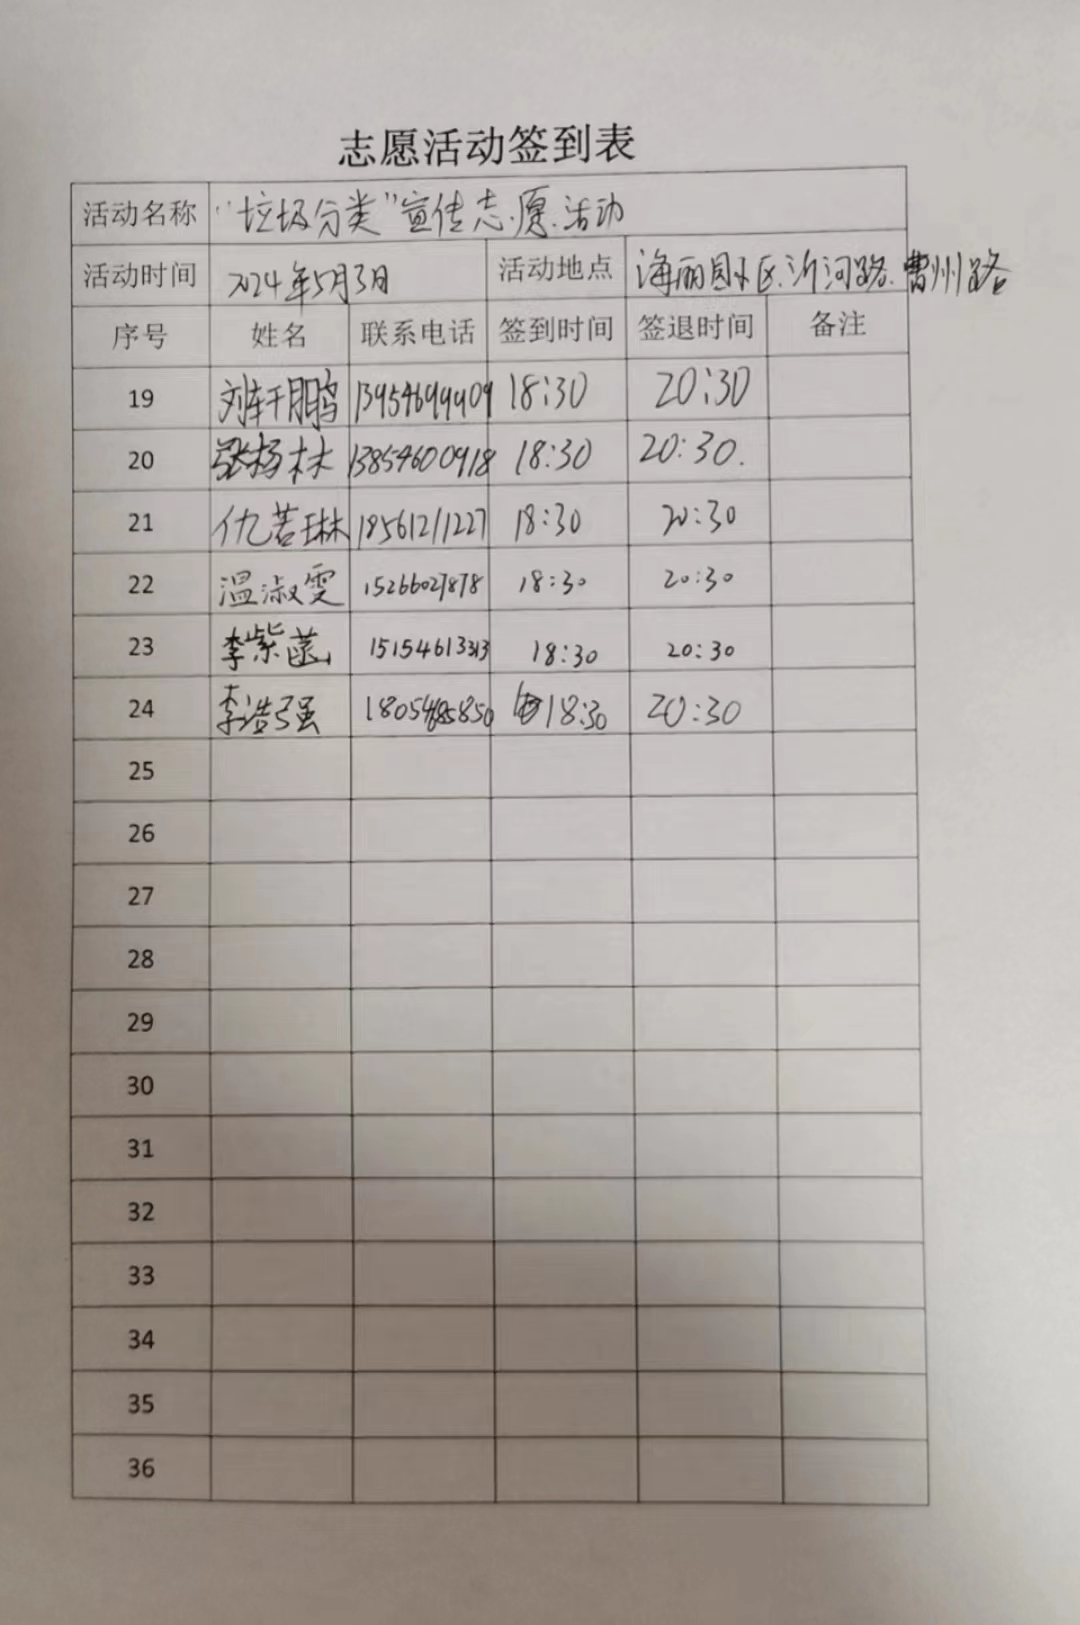 志愿活动签到表
活动名称 “垃圾分类”宣传志愿活动
活动时间 2024年5月3日 活动地点 海丽园小区.沂河路.曹州路
序号 姓名 联系电话 签到时间 签退时间 备注
19 刘轩鹏 18:30 20:30
20 张杨林 13854600918 18:30 20:30.
21 仇若琳 18561211227 18:30 20:30
22 温淑雯 15266027878 18:30 20:30
23 李紫菡 15154613313 18:30 20:30
24 李浩强 18:30 20:30
25
26
27
28
29
30
31
32
33
34
35
36